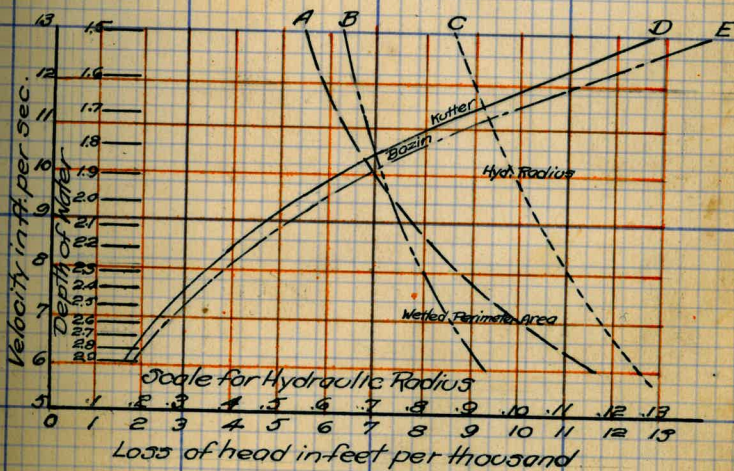 A B C D E
13
12
11
10
9
8
7
6
5
Velocity in ft. per Sec.
Depth of Water
1.5
1.6
1.7
1.8
1.9
2.0
2.1
2.2
2.3
2.4
2.5
2.6
2.7
2.8
2.9
Kutter
Bazin
Hyd. Radius
Wetted Perimeter Area
Scale for Hydraulic Radius
.1 .2 .3 .4 .5 .6 .7 .8 .9 .10 .11 .12 .13
0 1 2 3 4 5 6 7 8 9 10 11 12 13
Loss of head in feet per thousand